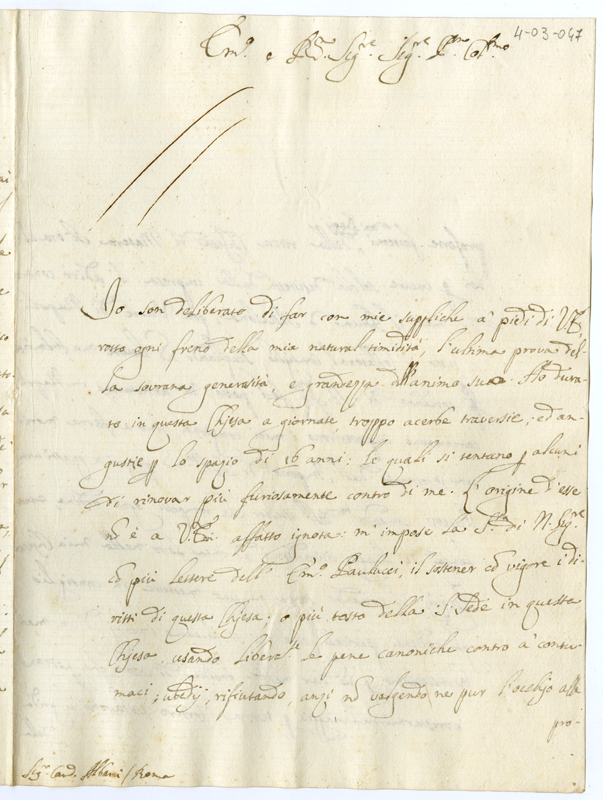 4-03-047
Em.o e R.mo Sig.re Sig.re P.ne Col.mo
Io son deliberato di far con mie suppliche a' piedi di V.E.,
rotto ogni freno della mia natural timidità, l'ultima prova del-
la sovrana generosità, e grandezza dell'animo suo. Ho dura-
to in questa Chiesa a giornate, troppo acerbe traversie, ed an-
gustie p lo spazio di 16 anni: le quali si tentano p alcuni
di rinovar più furiosamente contro di me. L'origine d'esse
nō è a V.E. affatto ignota: m'impose la S.tà di N. Sig.re
cō più lettere dell' Em.o Paulucci, il sostener cō vigore i di-
ritti di questa Chiesa; o più tosto della S. Sede in questa
Chiesa, usando liberam.te le pene canoniche contro a' contu-
maci; ubedij, rifiutando, anzi nō volgendo ne pur l'occhio alle
pro-
Sig.r Card. Albani / Roma